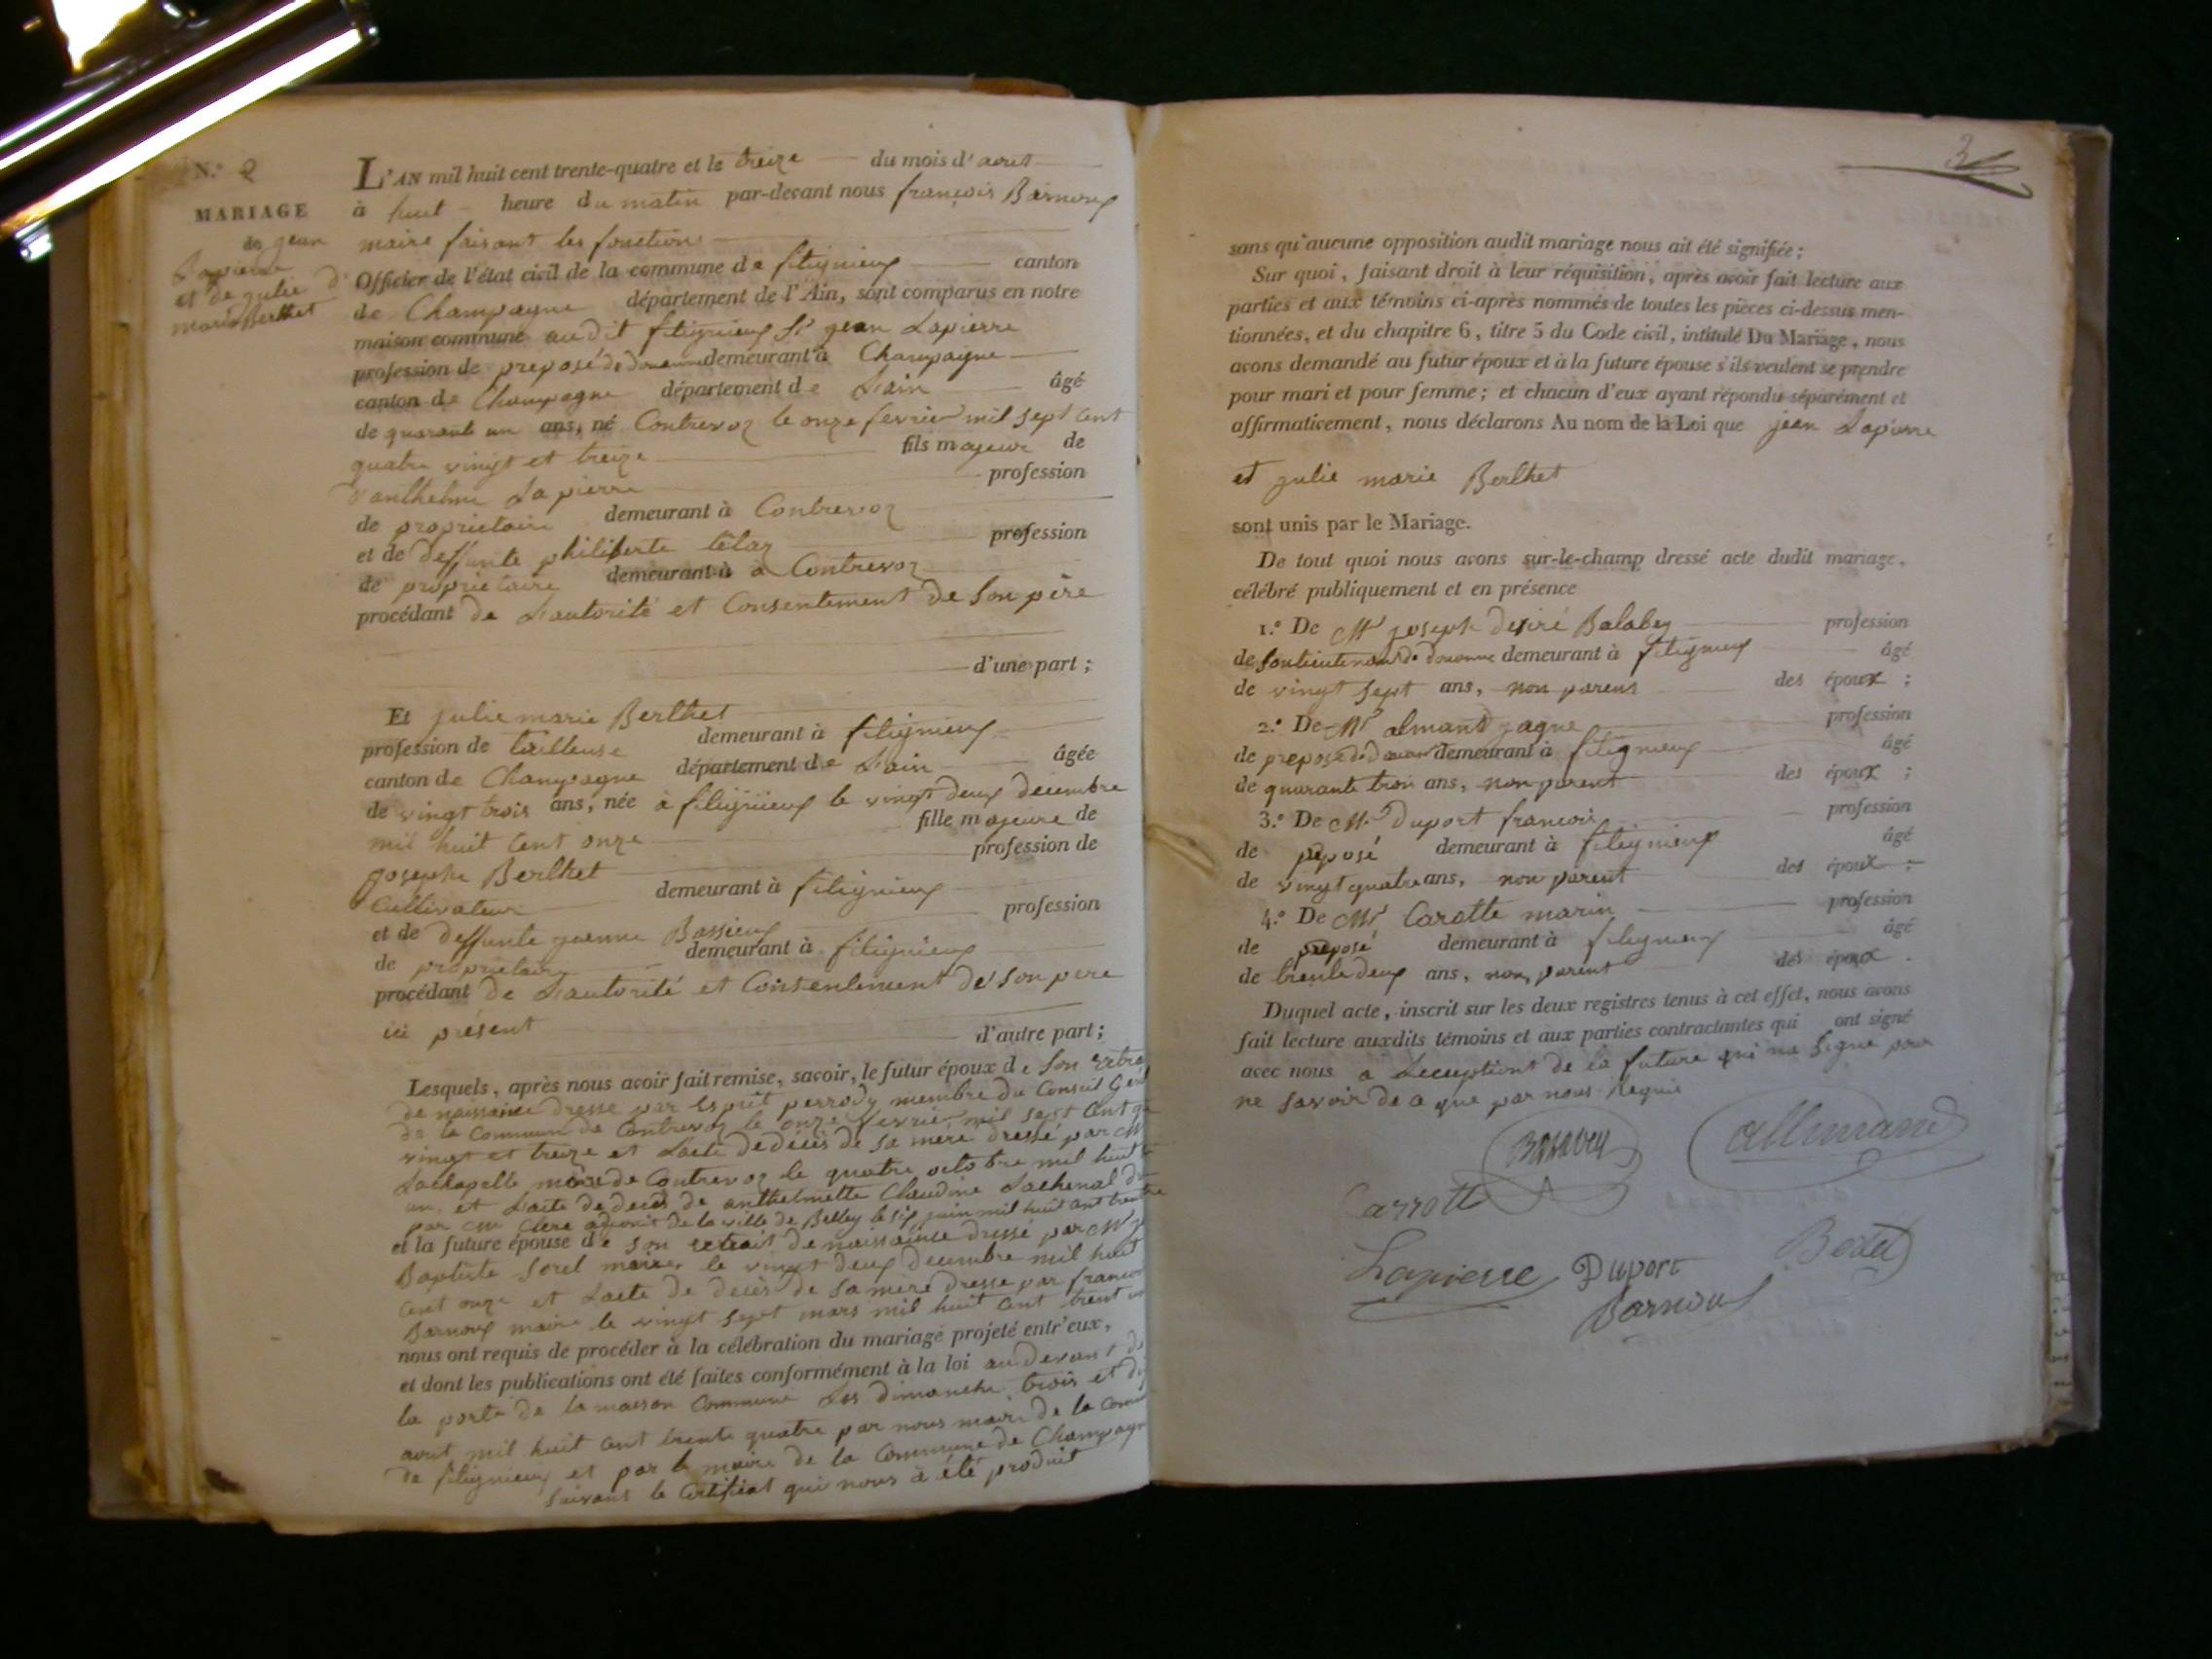 N.º 2
MARIAGE
de jean
Lapierre
et de julie
marie Berthet
L'AN mil huit cent trente-quatre et le treize du mois d'avril
à huit heure du matin par-devant nous françois Barnoux
maire faisant les fonctions
Officier de l'état civil de la commune de fitignieux canton
de Champagne département de l'Ain, sont comparus en notre
maison commune audit fitignieux Sr jean Lapierre
profession de preposé de douanne demeurant à Champagne
canton de Champagne département de Lain âgé
de quarante un ans, né Contrevoz le onze fevrier mil sept cent
quatre vingt et treize fils majeur de
d'anthelme Lapierre profession
de proprietaire demeurant à Contrevoz
et de deffunte philiberte télaz profession
de proprietaire demeurant à a Contrevoz
procédant de Lautorité et Consentement de Son père
d'une part ;
Et julie marie Berthet
profession de tailleuse demeurant à fitignieux
canton de Champagne département de Lain âgée
de vingt trois ans, née à fitignieux le vingt deux decembre
mil huit cent onze fille majeure de
joseph Berthet profession de
Cultivateur demeurant à fitignieux
et de deffunte jeanne Bassieux profession
de proprietaire demeurant à fitignieux
procédant de Lautorité et Consentement de son pere
ici présent d'autre part ;
Lesquels, après nous avoir fait remise, savoir, le futur époux de Son extrai
de naissance dresse par Esprit perrody membre du Conseil Géné
de la Commune de Contrevoz le onze fevrier mil sept cent
vingt et treize et Lacte de décès de sa mère dressé par Mr
Lachapelle maire de Contrevoz le quatre octobre mil huit
un et Lacte de decès de anthelmette Claudine Lachenal
par Mr Clerc adjoint de la ville de Belley le six juin mil huit cent trente
et la future épouse de son extrait de naissance dressé par Mr
Baptiste Sorel maire le vingt deux decembre mil huit
cent onze et Lacte de decès de sa mere dresse par francois
Barnoux maire le vingt sept mars mil huit cent trent un
nous ont requis de procéder à la célébration du mariage projeté entr'eux,
et dont les publications ont été faites conformément à la loi au devant de
la porte de la maison Commune Les dimanche trois et
avril mil huit cent trente quatre par nous maire de la Comm
de fitignieux et par le maire de la Commune de Champagne
suivant le Certificat qui nous a été produit
3
sans qu'aucune opposition audit mariage nous ait été signifiée ;
Sur quoi, faisant droit à leur réquisition, après avoir fait lecture aux
parties et aux témoins ci-après nommés de toutes les pièces ci-dessus men-
tionnées, et du chapitre 6, titre 5 du Code civil, intitulé Du Mariage, nous
avons demandé au futur époux et à la future épouse s'ils veulent se prendre
pour mari et pour femme ; et chacun d'eux ayant répondu séparément et
affirmativement, nous déclarons Au nom de la Loi que jean Lapierre
et julie marie Berthet
sont unis par le Mariage.
De tout quoi nous avons sur-le-champ dressé acte dudit mariage,
célébré publiquement et en présence
1.º De Mr joseph desiré Balabey profession
de Soulieutenant de douanne demeurant à fitignieux âgé
de vingt sept ans, non parens des époux ;
2.º De Mr almand profession
de preposé de douane demeurant à fitignieux âgé
de quarante trois ans, non parent des époux ;
3.º De Mr duport francois profession
de preposé demeurant à fitignieux âgé
de vingt quatre ans, non parent des époux ;
4.º De Mr Carotte marin profession
de preposé demeurant à fitignieux âgé
de trente deux ans, non parent des époux .
Duquel acte, inscrit sur les deux registres tenus à cet effet, nous avons
fait lecture auxdits témoins et aux parties contractantes qui ont signé
avec nous a Lexception de la future qui na Signe pour
ne Savoir de a que par nous Requis
Balabey
allemand
Carrotte
Lapierre Duport
Barnoux